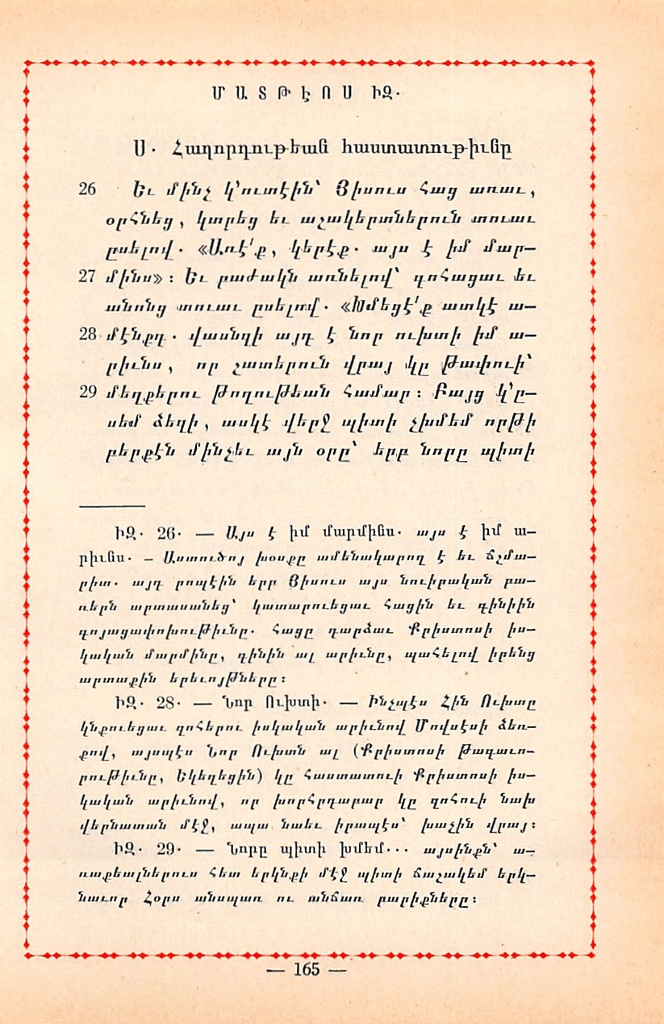 ՄԱՏԹԷՈՍ ԻԶ.
Ս. Հաղորդութեան հաստատութիւնը
26 Եւ մինչ կ՚ուտէին՝ Յիսուս հաց առաւ,
օրհնեց, կտրեց եւ աշակերտներուն տուաւ
ըսելով. «Առէ՛ք, կերէք. այս է իմ մար–
27 մինս»։ Եւ բաժակն առնելով՝ գոհացաւ եւ
անոնց տուաւ ըսելով. «Խմեցէ՛ք ատկէ ա–
28 մէնքդ. վասնզի այդ է նոր ուխտի իմ ա–
րիւնս, որ շատերուն վրայ կը թափուի՝
29 մեղքերու թողութեան համար։ Բայց կ՚ը–
սեմ ձեզի, ասկէ վերջ պիտի չխմեմ որթի
բերքէն մինչեւ այն օրը՝ երբ նորը պիտի
ԻԶ. 26. — Այս է իմ մարմինս. այս է իմ ա–
րիւնս. – Աստուծոյ խօսքը ամենակարող է եւ ճշմա–
րիտ. այդ րոպէին երբ Յիսուս այս նուիրական բա–
ռերն արտասանեց՝ կատարուեցաւ հացին եւ գինիին
գոյացափոխութիւնը. հացը դարձաւ Քրիստոսի իս–
կական մարմինը, գինին ալ արիւնը, պահելով իրենց
արտաքին երեւոյթները։
ԻԶ. 28. — Նոր Ուխտի. — Ինչպէս Հին Ուխտը
կնքուեցաւ զոհերու իսկական արիւնով Մովսէսի ձեռ–
քով, այսպէս Նոր Ուխտն ալ (Քրիստոսի Թագաւո–
րութիւնը, Եկեղեցին) կը հաստատուի Քրիստոսի իս–
կական արիւնով, որ խորհրդաբար կը զոհուի նախ
վերնատան մէջ, ապա նաեւ իրապէս՝ խաչին վրայ։
ԻԶ. 29. — Նորը պիտի խմեմ... այսինքն՝ ա–
ռաքեալներուս հետ երկնքի մէջ պիտի ճաշակեմ երկ–
նաւոր Հօրս անսպառ ու անճառ բարիքները։
— 165 —